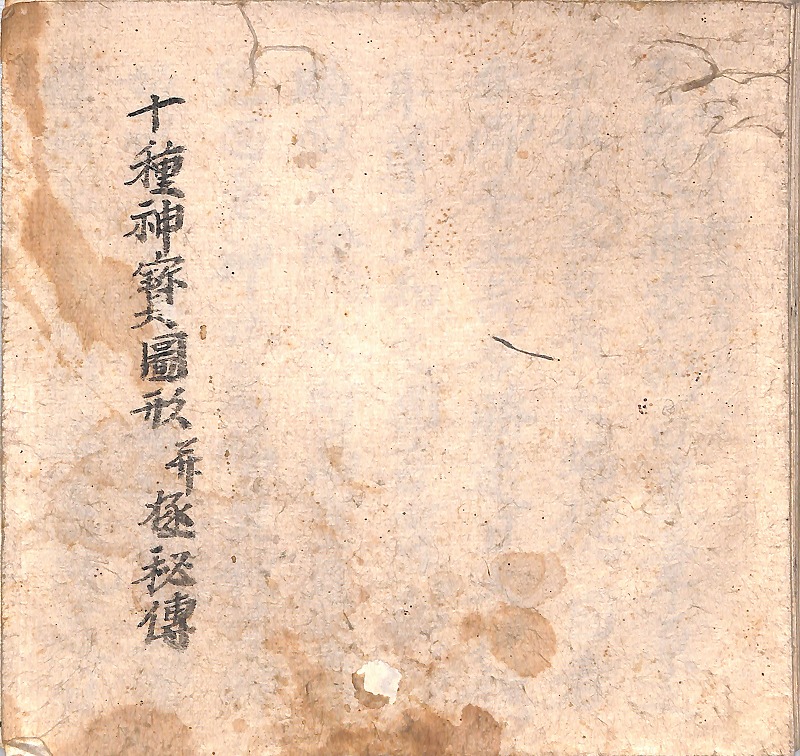 十種神寳大圖形并極秘傳